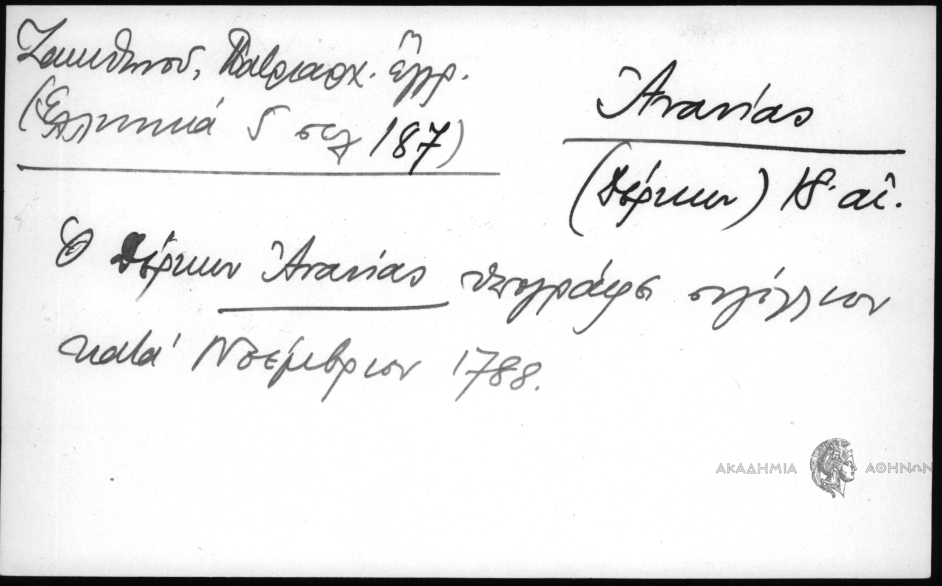 Ζακυθηνοῦ, Πατριαρχ. ἔγγρ.
(Ἑλληνικά 5 σελ 187)
Ἀνανίας
(Δέρκων) 18. αἰ.
Ὁ Δέρκων Ἀνανίας ὑπογράφει σιγίλλιον
κατά Νοέμβριον 1788.
ΑΚΑΔΗΜΙΑ ΑΘΗΝΩΝ